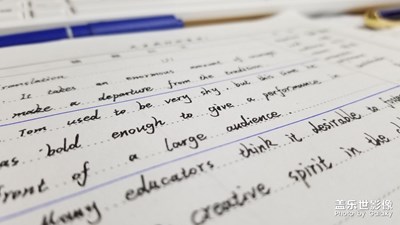 Translation.
It takes an enormous amount of courage
make a departure from the tradition
Tom used to be very shy, but this time he
as bold enough to give a performance in
front of a large audience.
Many educators think it desirable to
creative spirit in the
盖乐世影像
Photo by Galaxy